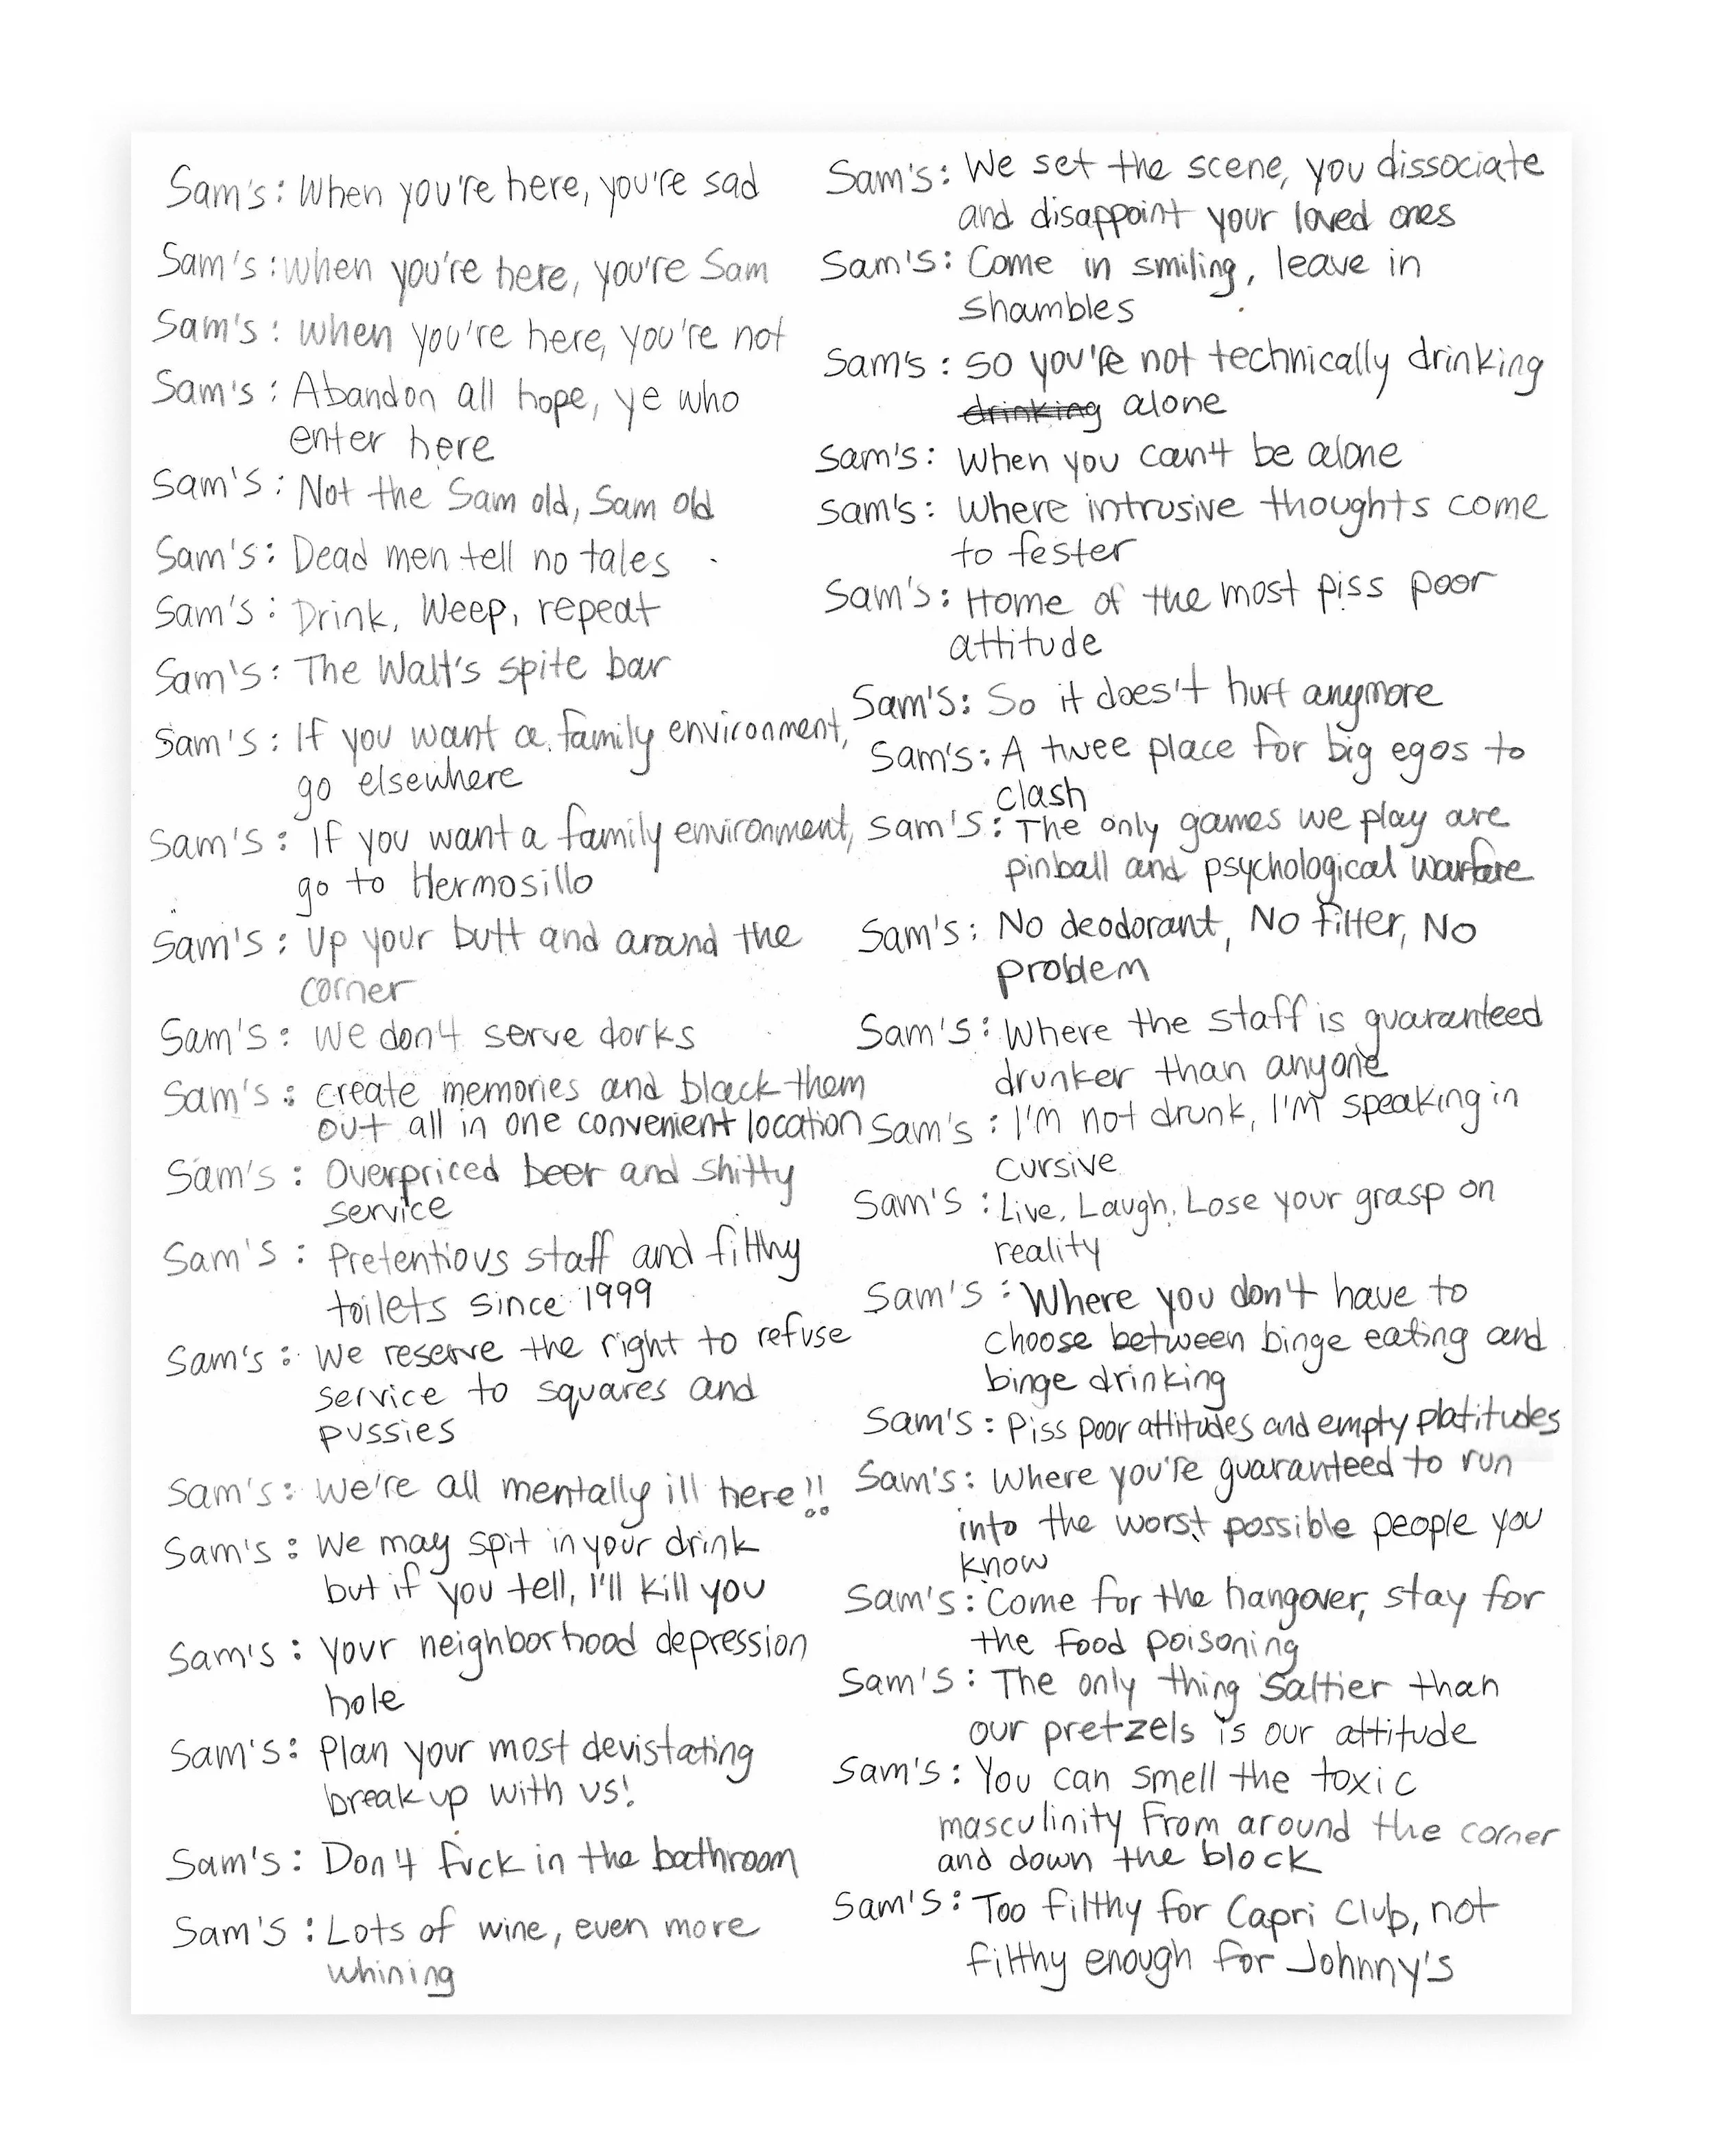 Sam's: When you're here, you're sad
Sam's: when you're here, you're Sam
Sam's: when you're here, you're not
Sam's: Abandon all hope, ye who
enter here
Sam's: Not the Sam old, Sam old
Sam's: Dead men tell no tales
Sam's: Drink, Weep, repeat
Sam's: The Walt's spite bar
Sam's: If you want a family environment,
go elsewhere
Sam's: If you want a family environment,
go to Hermosillo
Sam's: Up your butt and around the
corner
Sam's: We don't serve dorks
Sam's: create memories and black them
out all in one convenient location
Sam's: Overpriced beer and shitty
service
Sam's: Pretentious staff and filthy
toilets since 1999
Sam's: We reserve the right to refuse
service to squares and
pussies
Sam's: We're all mentally ill here!!
Sam's: We may spit in your drink
but if you tell, I'll kill you
Sam's: Your neighborhood depression
hole
Sam's: Plan your most devistating
breakup with us!
Sam's: Don't fuck in the bathroom
Sam's: Lots of wine, even more
whining
Sam's: We set the scene, you dissociate
and disappoint your loved ones
Sam's: Come in smiling, leave in
shambles
Sam's: So you're not technically drinking
drinking alone
Sam's: When you can't be alone
Sam's: Where intrusive thoughts come
to fester
Sam's: Home of the most piss poor
attitude
Sam's: So it does't hurt anymore
Sam's: A twee place for big egos to
clash
Sam's: The only games we play are
pinball and psychological warfare
Sam's: No deodorant, No filter, No
problem
Sam's: Where the staff is guaranteed
drunker than anyone
Sam's: I'm not drunk, I'm speaking in
cursive
Sam's: Live, Laugh, Lose your grasp on
reality
Sam's: Where you don't have to
choose between binge eating and
binge drinking
Sam's: Piss poor attitudes and empty platitudes
Sam's: Where you're guaranteed to run
into the worst possible people you
know
Sam's: Come for the hangover, stay for
the food poisoning
Sam's: The only thing saltier than
our pretzels is our attitude
Sam's: You can smell the toxic
masculinity from around the corner
and down the block
Sam's: Too filthy for Capri Club, not
filthy enough for Johnny's